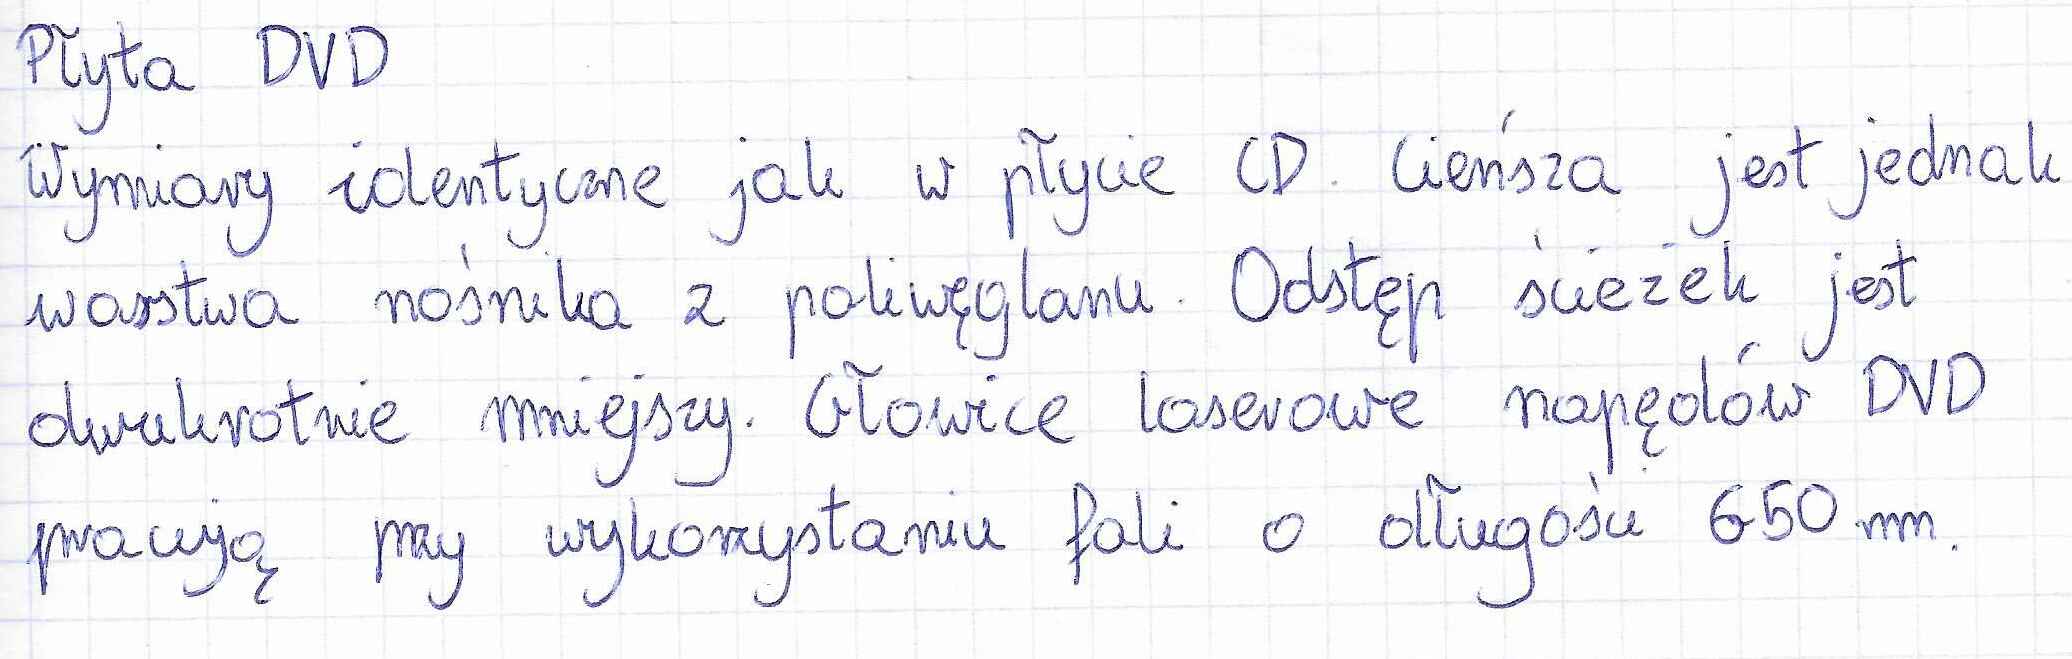 Płyta DVD
Wymiary identyczne jak w płycie CD. Cieńsza jest jednak
warstwa nośnika z poliwęglanu. Odstęp ścieżek jest
dwukrotnie mniejszy. Głowice laserowe napędów DVD
pracują przy wykorzystaniu fali o długości 650 nm.